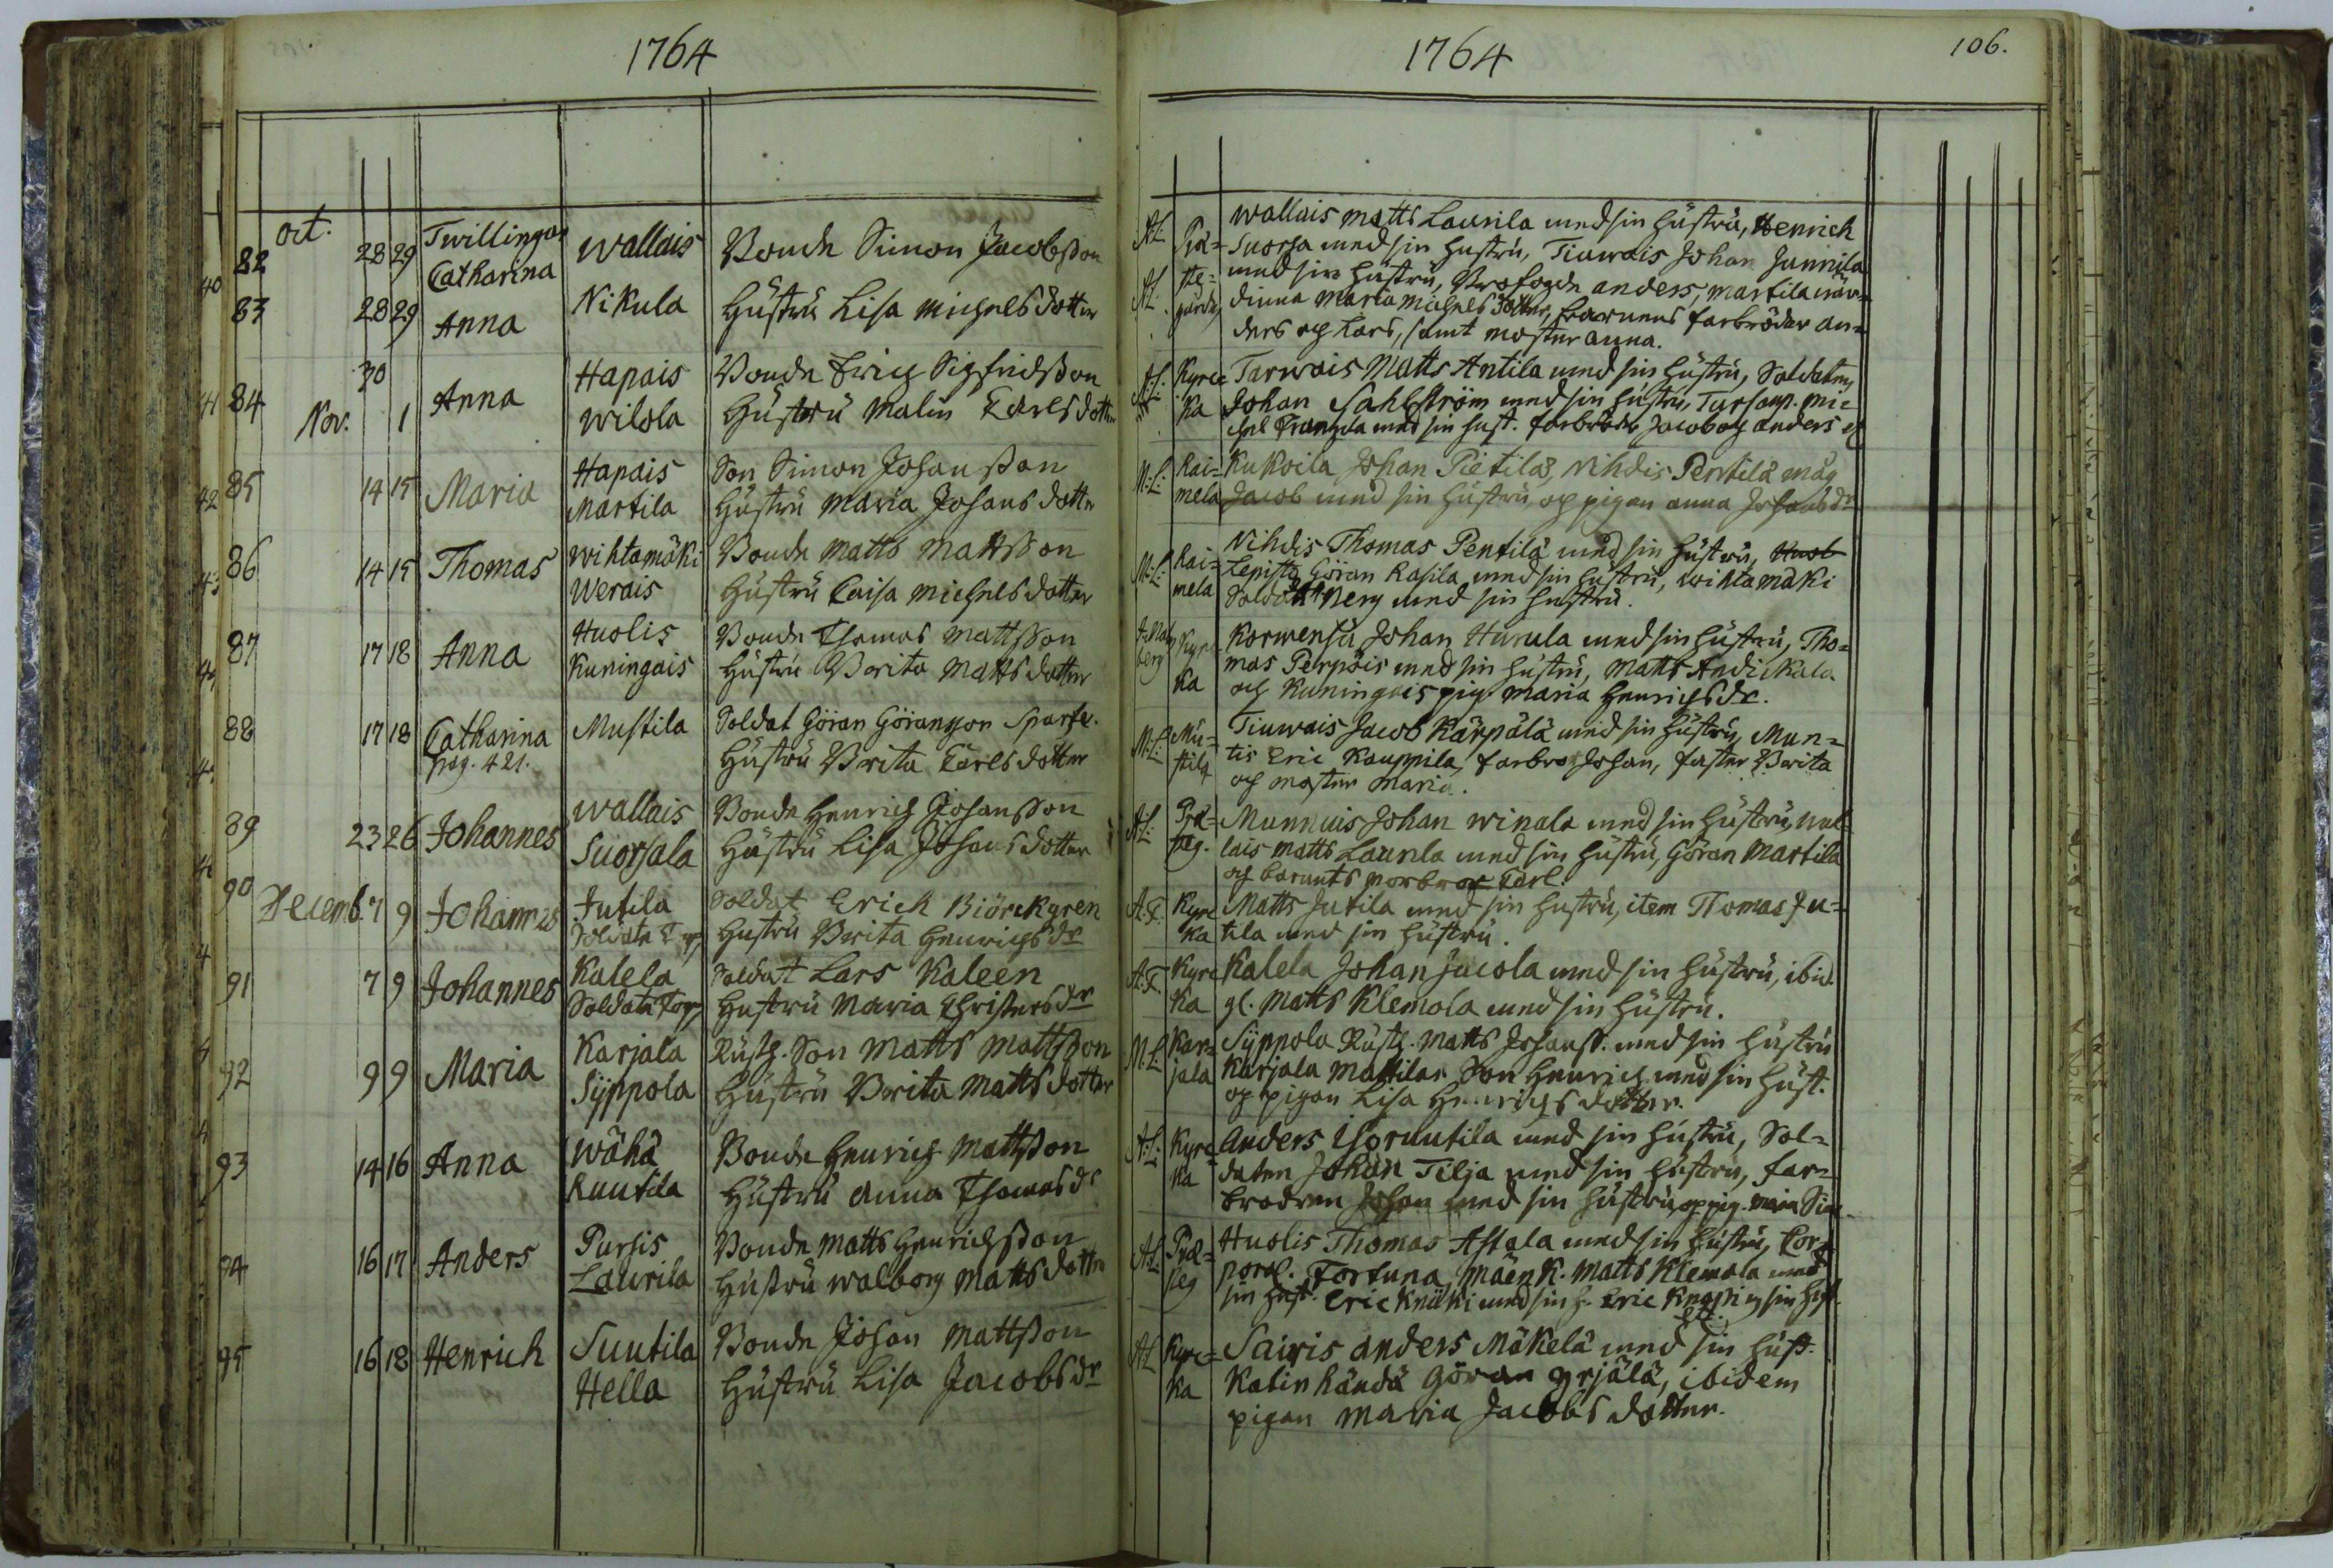 1764
oct.
Twillingar
82 28 29 Catharina wallais Bonde Simon Jacobsson
83 28 29 Anna Nikula Hustru Lisa Michelsdotter
30 Hapais Bonde Erich Sigfridsson
84 Nov. 1 Anna wilola Hustru Malin Carlsdotter
85 14 15 Maria Hapais Son Simon Johansson
Martila Hustru Maria Johansdotter
86 14 15 Thomas wihtamäki Bonde Matts Mattsson
Werais Hustru Caisa Michelsdotter
87 17 18 Anna Huolis Bonde Thomas Mattsson
Kuningais Hustru Brita Mattsdotter
88 17 18 Catharina Mustila Soldat Göran Göransson
pag. 421. Hustru Brita Carlsdotter
89 23 26 Johannes wallais Bonde Henrich Johansson
Suorsala Hustru Lisa Johansdotter
90 Decemb. 7 9 Johannes Jutila Soldat Erich Biörckgren
Soldate Torp Hustru Brita Henrichsdr
91 7 9 Johannes Kalela Soldat Lars Kaleen
Soldate Torp Hustru Maria Christersdr
92 9 9 Maria Karjala Rusth. Son Matts Mattsson
Syppola Hustru Brita Mattsdotter
93 14 16 Anna wähä Bonde Henrich Mattsson
Ruutila Hustru Anna Thomasdr
94 16 17 Anders Pursis Bonde Matts Henrichsson
Laurila Hustru walborg Mattsdotter
95 16 18 Henrich Suutila Bonde Johan Mattsson
Hella Hustru Lisa Jacobsdr
1764
106.
A.L. Prä= wallais Matts Laurila med sin hustru, Henrich
Suorsa med sin hustru, Tiuwais Johan Junnila
A.L. ste= med sin hustru, Profogde anders, martila
gården dinna Maria Michelsdotter, barnens farbröder An=
ders och Lars, samt moster anna.
A.L. Kyrc= Tarwais Matts Antila med sin hustru, Soldaten
ka Johan Sahlström med sin hustru, Mic=
hel med sin hust. farbröder Jacob och anders
M.L. Rai= Kukoila Johan Pietilä, Nihdis Pentilä måg
mela Jacob med sin hustru, och pigan anna Johansdr
M.L. Rai= Nihdis Thomas Pentilä med sin hustru,
mela Lepistö Göran Rasila med sin hustru, wihtamäki
Soldat Berg med sin hustru.
berg Kyrc= Korwensu Johan Hurula med sin hustru, Tho=
mas Perpöis med sin hustru, Matts Andickala
ka och Kuningais pig. Maria Henrichsdr.
M.L. Mu= Tiuwais Jacob Kärpälä med sin hustru, Mun=
stila tis Eric Kauppila, farbror Johan, faster Brita
och moster Maria.
A.L. Prä= Munnuis Johan winala med sin hustru, wal=
steg. lais Matts Laurila med sin hustru, Göran Martila
och barnets morbror Carl.
A.F. Kyrc= Matts Jutila med sin hustru, item Thomas Ju=
ka tila med sin hustru.
A.F. Kyrc= Kalela Johan Jacola med sin hustru, ibid.
ka gl. Matts Klemola med sin hustru.
M.L. Kar= Syppola Rusth. Matts Johanss. med sin hustru
jala Karjala Mattilas Son Henrich med sin hust.
och pigan Lisa Henrichsdotter.
A.L. Kyrc= Anders Isoruutila med sin hustru, Sol=
ka daten Johan Tilja med sin hustru, far=
brodren Johan med sin hustru och pig. Maria
A.L. Prä= Huolis Thomas Astala med sin hustru, Cor=
steg poral. Fortuna, Mäenk. Matts Klemola med
sin hust. Eric Knäki med sin h. Eric
A.L. Kyrc= Sairis anders Mäkelä med sin hust.
ka Katinhändä Göran Yrjälä, ibidem
pigan Maria Jacobsdotter.